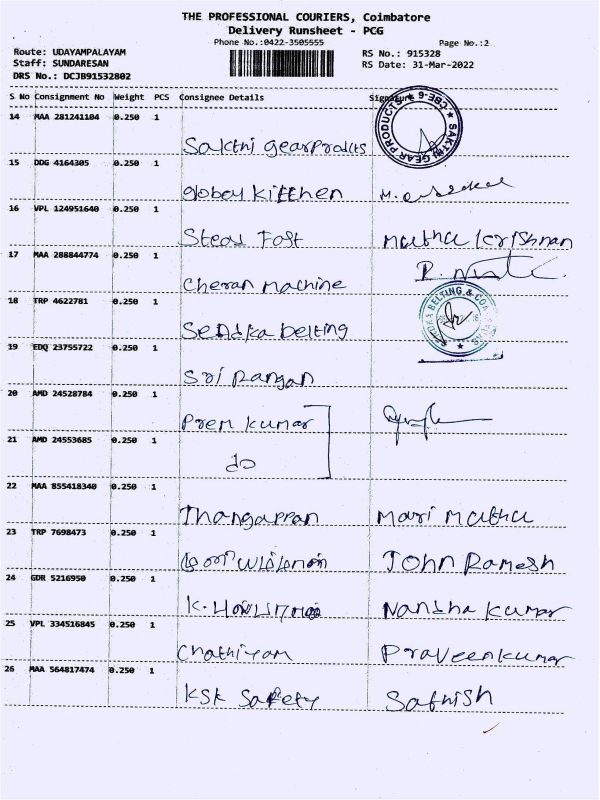 THE PROFESSIONAL COURIERS, Coimbatore
Delivery Runsheet - PCG
Phone No.:0422-3505555
Page No.:2
Route: UDAYAMPALAYAM
RS No.: 915328
Staff: SUNDARESAN
RS Date: 31-Mar-2022
DRS No.: DCJB91532802
S No Consignment No Weight PCS Consignee Details Signature
14 MAA 281241104 0.250 1
SAKTHI GEAR PRODUCTS ★ CBE-6 ★
Sakthi Gear Products
15 DDG 4164305 0.250 1
globey Kittchen M.
16 VPL 124951640 0.250 1
Steas Fast Muthu krishnan
17 MAA 288844774 0.250 1
Cheran Machine
18 TRP 4622781 0.250 1
BELTING & CO
Sendka belting
19 EDQ 23755722 0.250 1
Sri Rangan
20 AMD 24528784 0.250 1
Prem kumar
21 AMD 24553685 0.250 1
do
22 MAA 855418340 0.250 1
Thangappan Mari Muthu
23 TRP 7698473 0.250 1
John Ramesh
24 GDR 5216950 0.250 1
K. Nandha Kumar
25 VPL 334516845 0.250 1
Chathiyam Praveenkumar
26 MAA 564817474 0.250 1
KSK Safety Sathish